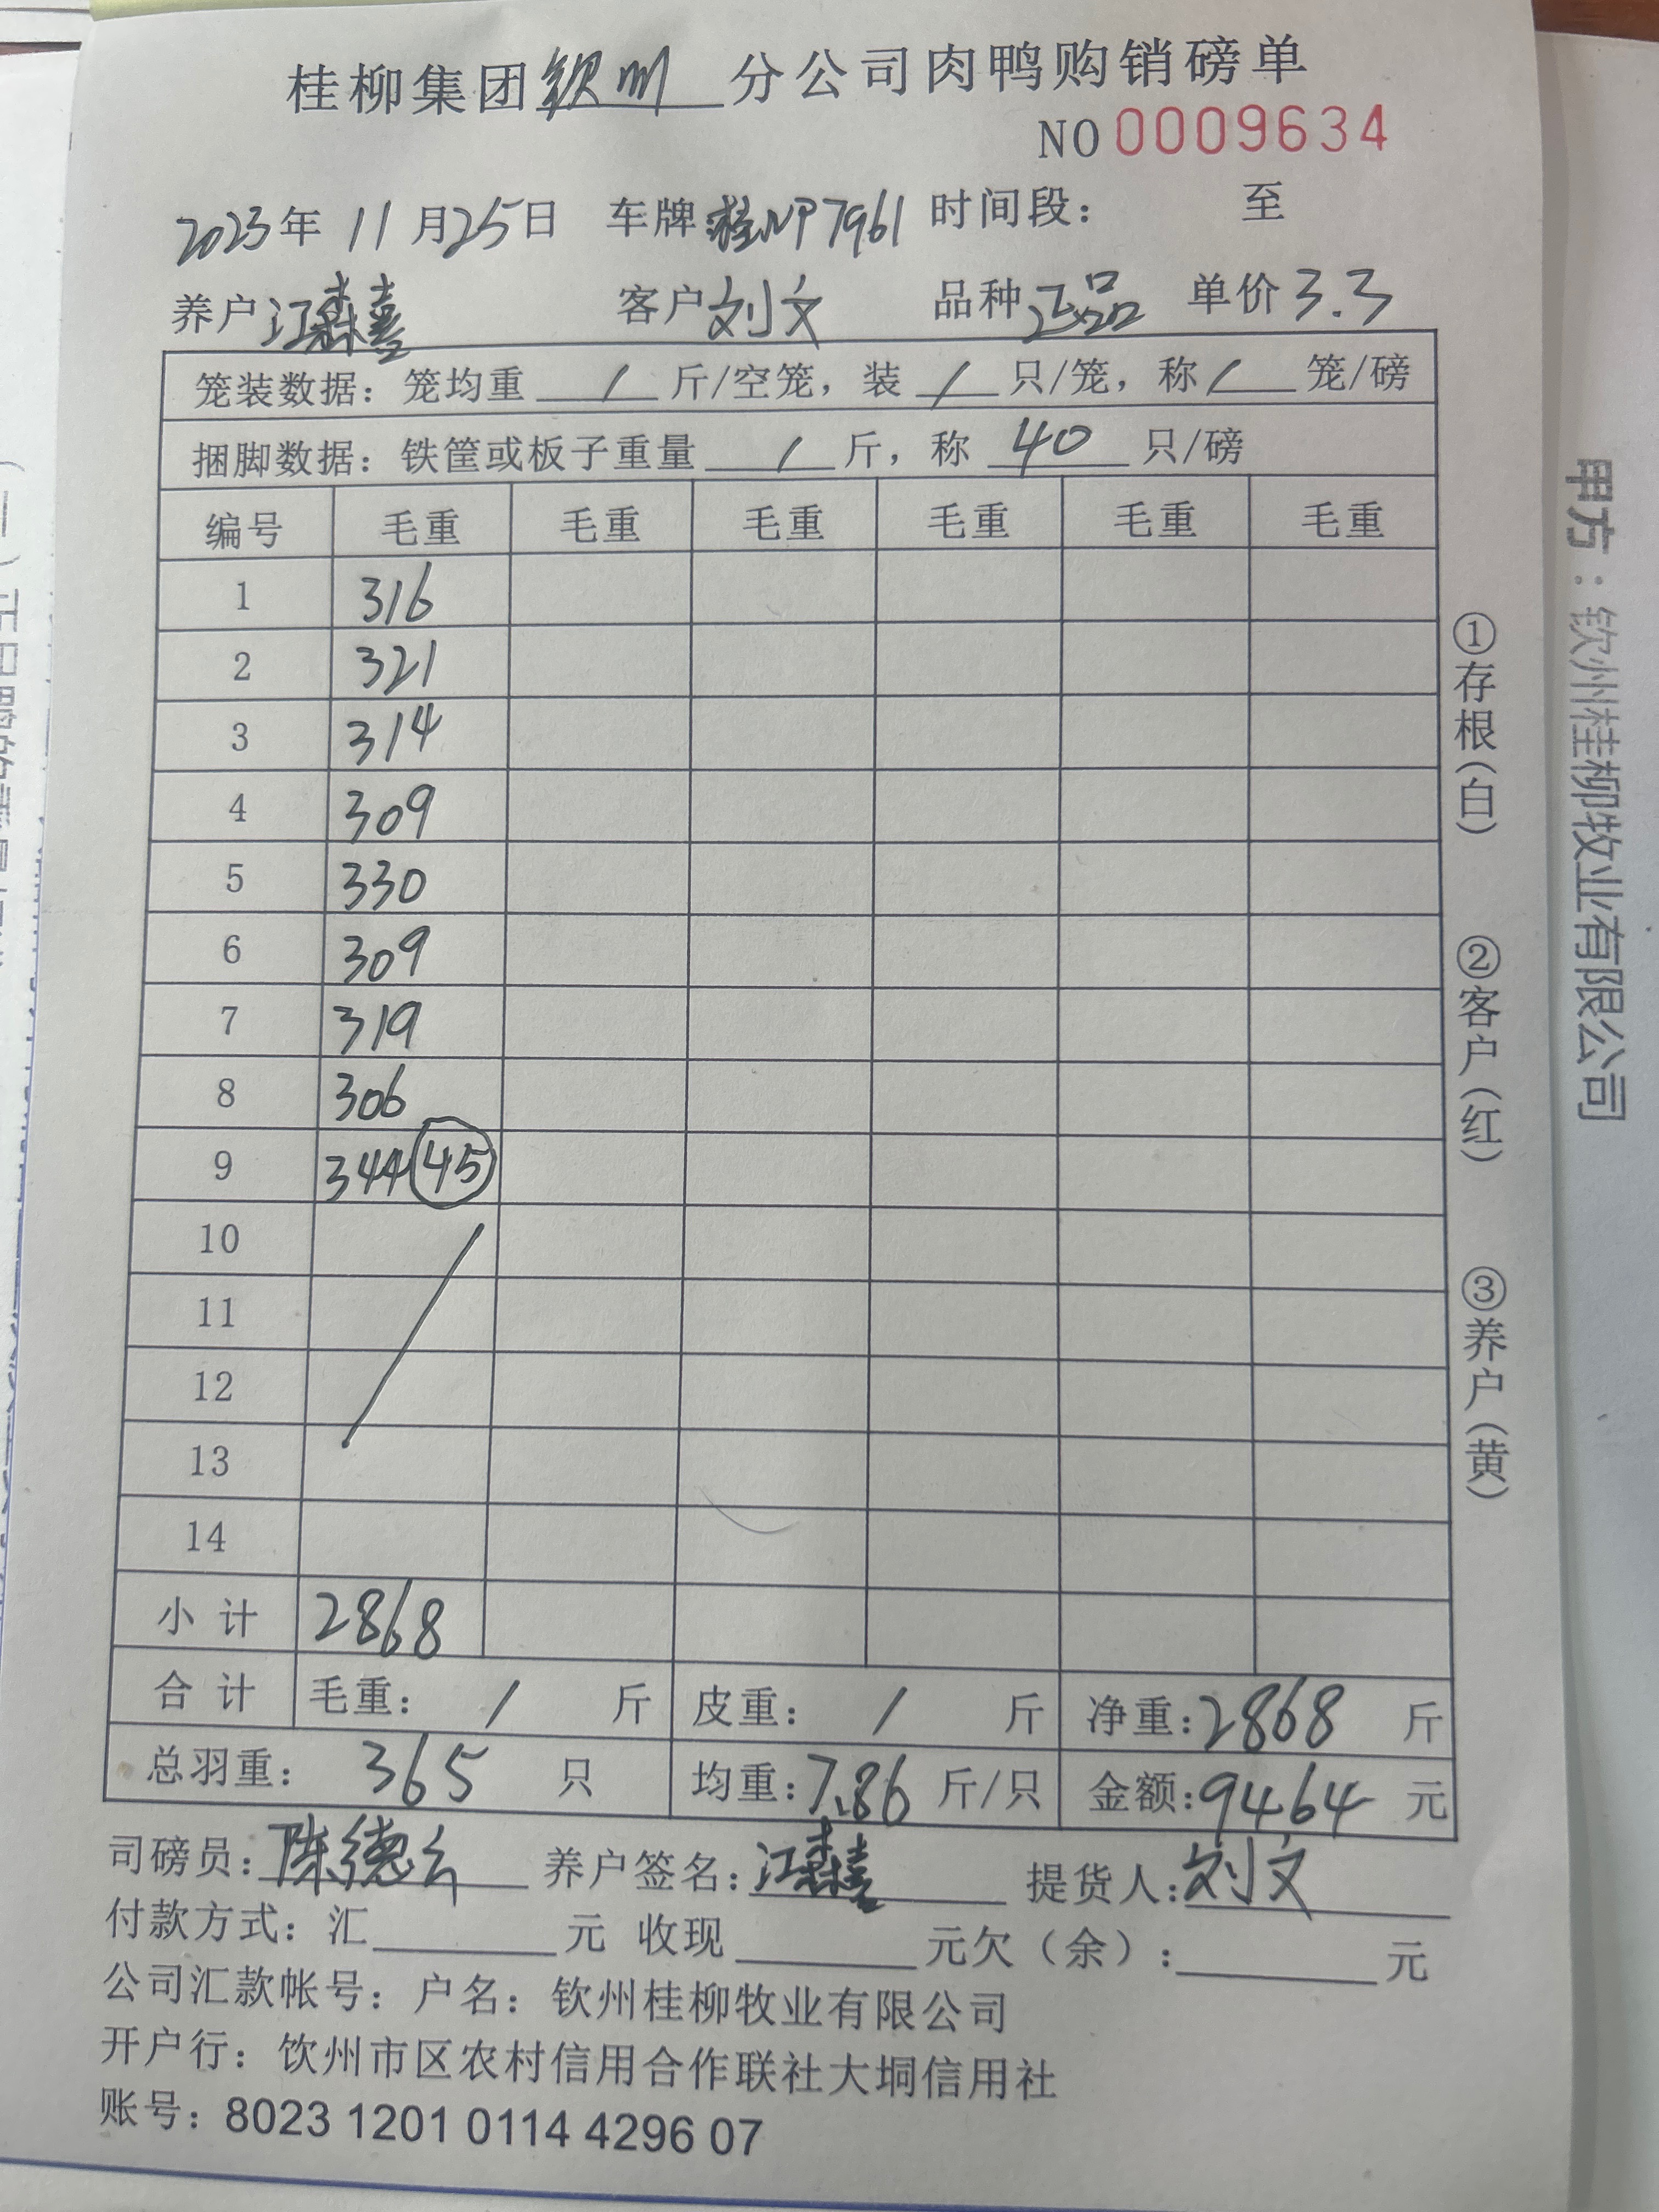 桂柳集团钦州分公司肉鸭购销磅单
NO 0009634
2023年 11月25日 车牌桂NP7961 时间段： 至
养户江森喜 客户刘文 品种正品 单价3.3
笼装数据：笼均重 / 斤/空笼，装 / 只/笼，称 / 笼/磅
捆脚数据：铁筐或板子重量 / 斤，称 40 只/磅
编号 毛重 毛重 毛重 毛重 毛重 毛重
1 316
2 321
3 314
4 309
5 330
6 309
7 319
8 306
9 344 45
10
11
12
13
14
小计 2868
合计 毛重： / 斤 皮重： / 斤 净重：2868 斤
总羽重： 365 只 均重：7.86 斤/只 金额：9464 元
司磅员：陈德云 养户签名：江森喜 提货人：刘文
付款方式：汇 元 收现 元欠（余）： 元
公司汇款帐号：户名：钦州桂柳牧业有限公司
开户行：钦州市区农村信用合作联社大垌信用社
账号：8023 1201 0114 4296 07
①存根（白） ②客户（红） ③养户（黄）
甲方：钦州桂柳牧业有限公司